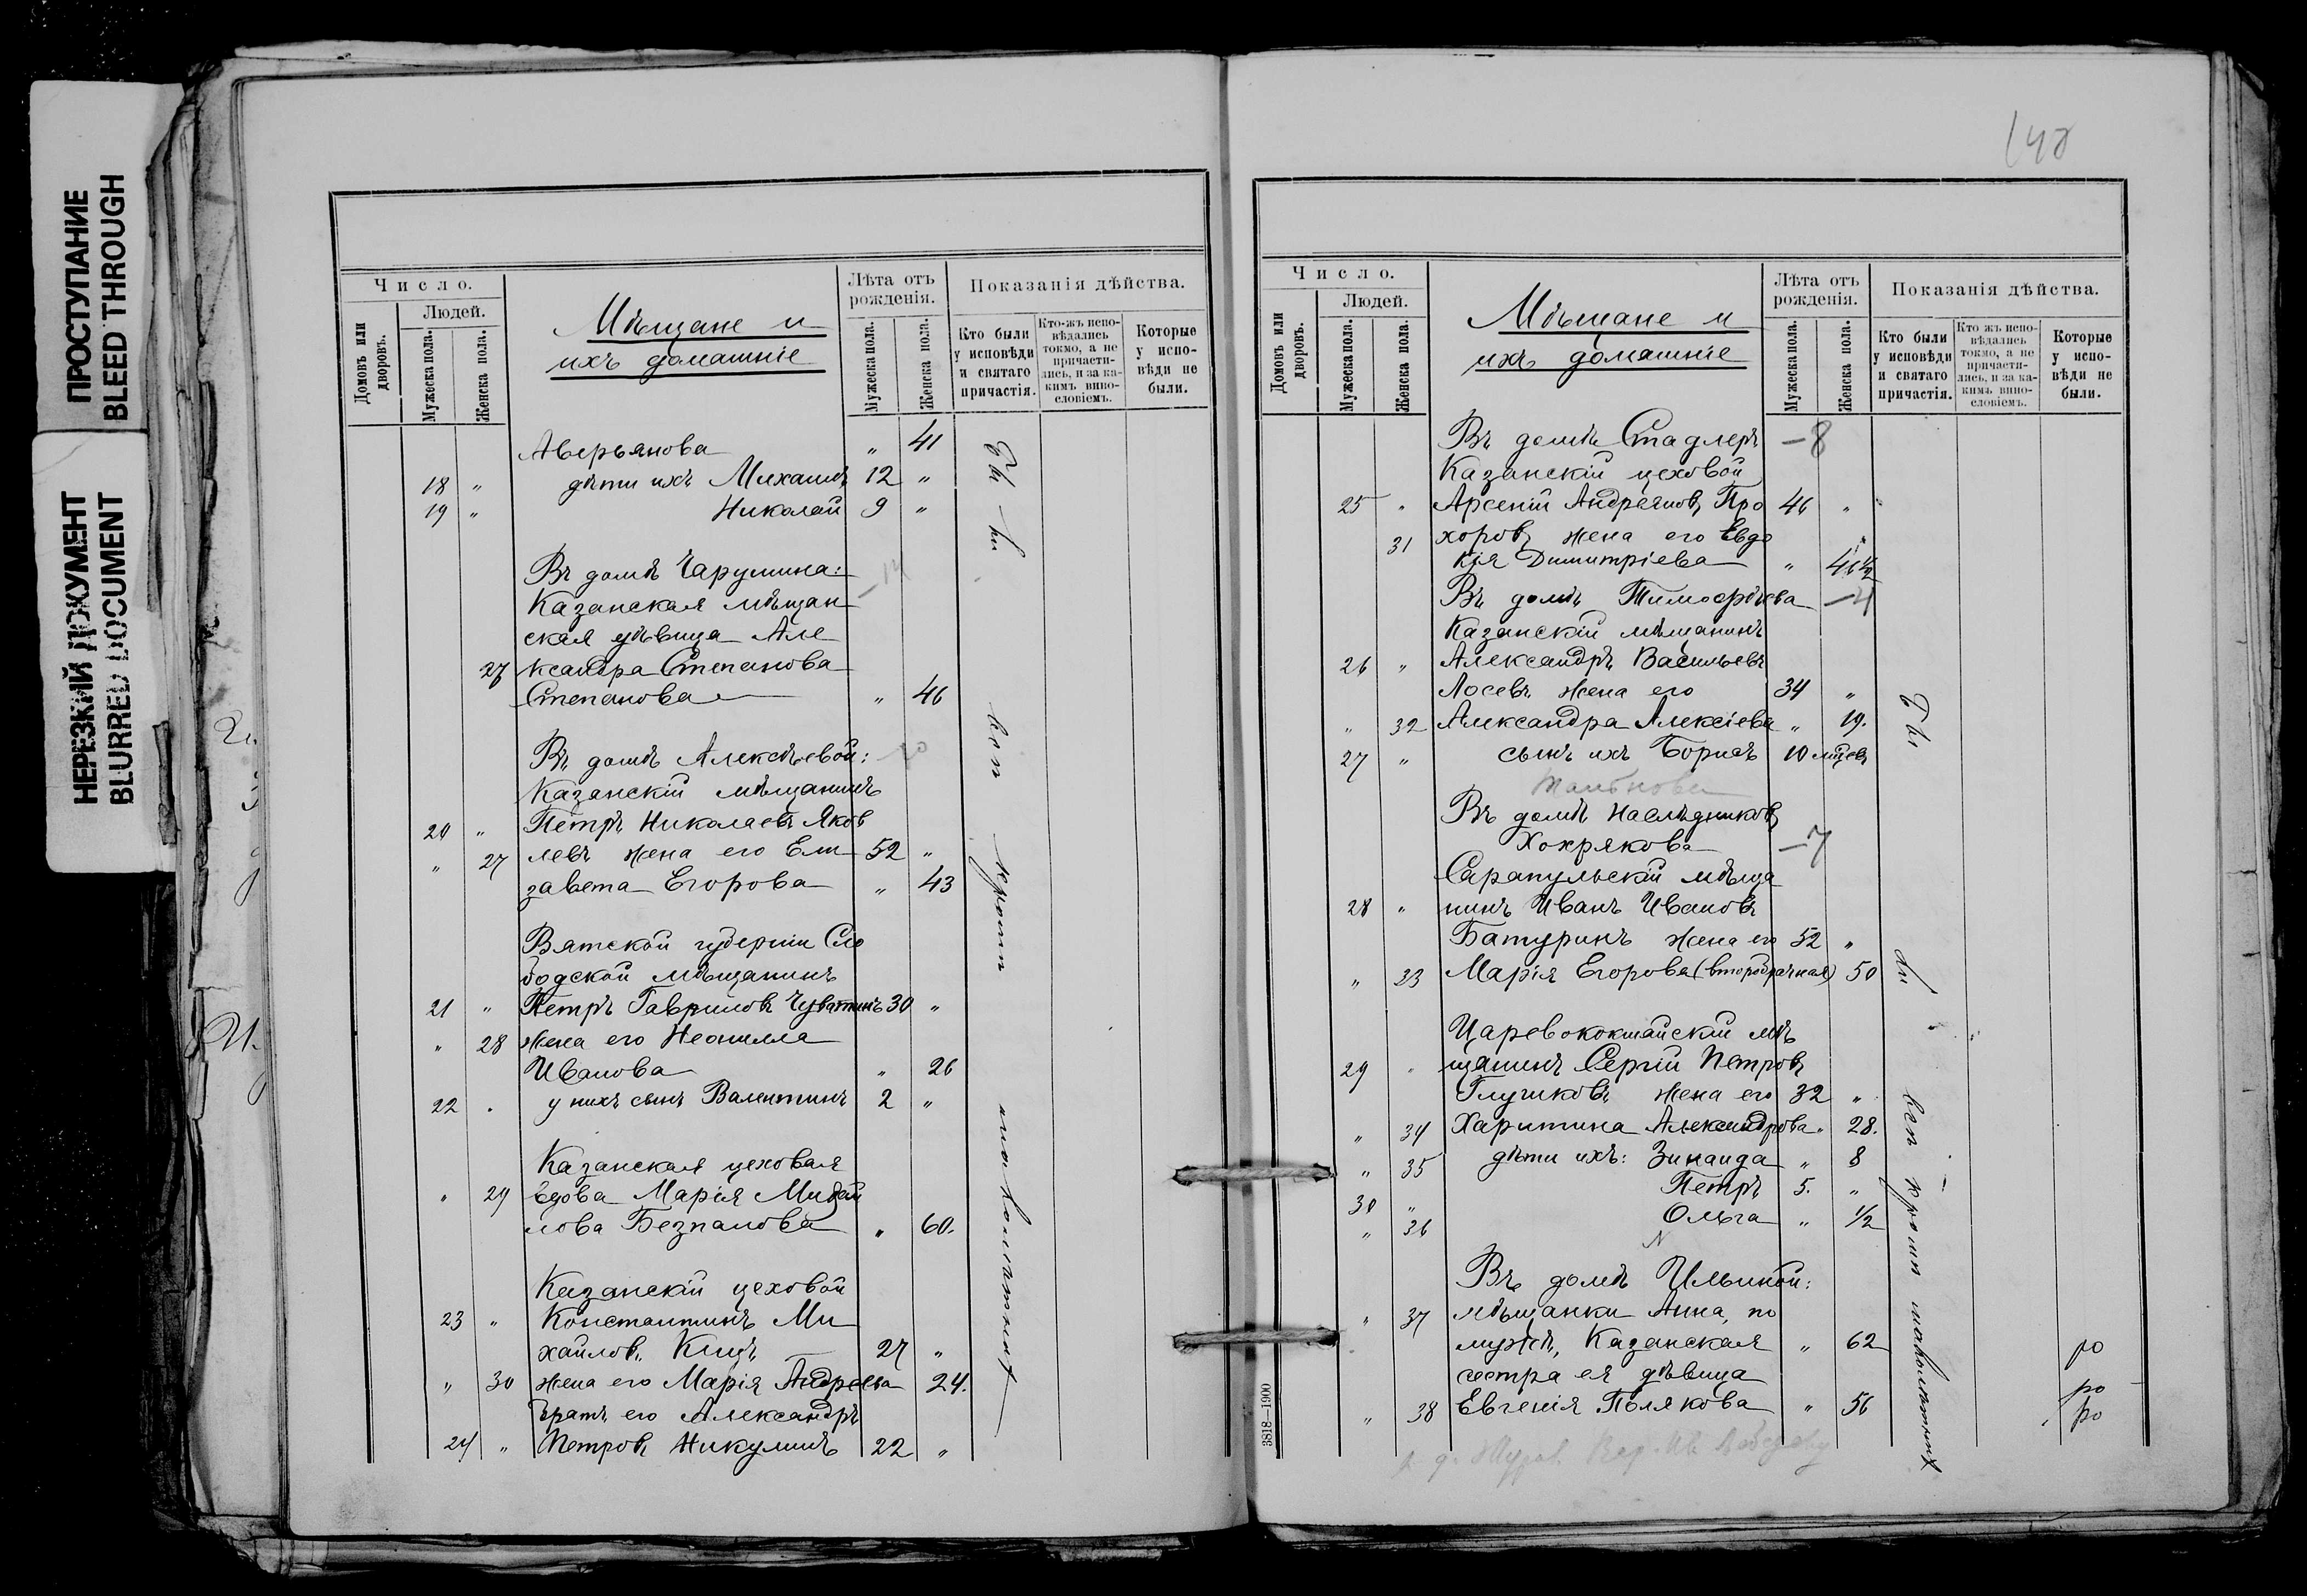 ПРОСТУПАНИЕ
BLEED THROUGH
НЕРЕЗКИЙ ДОКУМЕНТ
BLURRED DOCUMENT
Число.
Домовъ или дворовъ.
Людей.
Мужеска пола.
Женска пола.
Мѣщане и
ихъ домашніе
Лѣта отъ рожденія.
Мужеска пола.
Женска пола.
Показанія дѣйства.
Кто были у исповѣди и святаго причастія.
Кто-жъ исповѣдались токмо, а не причастились, и за какимъ винословіемъ.
Которые у исповѣди не были.
Аверьянова " 41
18 " дѣти ихъ Михаилъ 12 "
19 " Николай 9 "
Въ домѣ Чарушина:
Казанская мѣщан
ская дѣвица Але
27 ксандра Степанова
Степанова " 46
Въ домѣ Алексѣевой:
Казанскій мѣщанинъ
20 " Петръ Николаевъ Яков
" 27 левъ жена его Ели 52 "
завета Егорова " 43
Вятской губерніи Сло
бодской мѣщанинъ
21 " Петръ Гавриловъ Чуватинъ 30 "
" 28 жена его Неонилла
Иванова " 26
22 " у нихъ сынъ Валентинъ 2 "
Казанская цеховая
" 29 вдова Марія Михай
лова Безпалова " 60.
Казанскій цеховой
23 " Константинъ Ми
хайловъ 27 "
" 30 жена его Марія Андреева 24.
братъ его Александръ
24 " Петровъ Никулинъ 22 "
148
Число.
Домовъ или дворовъ.
Людей.
Мужеска пола.
Женска пола.
Мѣщане и
ихъ домашніе
Лѣта отъ рожденія.
Мужеска пола.
Женска пола.
Показанія дѣйства.
Кто были у исповѣди и святаго причастія.
Кто жъ исповѣдались токмо, а не причастились, и за какимъ винословіемъ.
Которые у исповѣди не были.
Въ домѣ Стадлеръ – 8
Казанскій цеховой
25 " Арсеній Андреяновъ Про 46 "
31 хоровъ жена его Евдо
кія Димитріева "
Въ домѣ Тимоѳѣева – 4
Казанскій мѣщанинъ
26 " Александръ Васильевъ
Лосевъ жена его 34 "
" 32 Александра Алексіева " 19.
27 " сынъ ихъ Борисъ 10 мѣсяц
Въ домѣ наслѣдниковъ
Хохрякова – 7
Сарапульскій мѣща
28 " нинъ Иванъ Ивановъ
Батуринъ жена его 52 "
" 33 Марія Егорова (второбрачная) 50
Царевококшайскій мѣ
29 " щанинъ Сергій Петровъ
Глушковъ жена его 32 "
" 34 Харитина Александрова " 28.
" 35 дѣти ихъ: Зинаида " 8
30 " Петръ 5. "
" 36 Ольга " 1/2
Въ домѣ Ильиной:
" 37 мѣщанки Анна, по
мужѣ, Казанская " 62
сестра ея дѣвица
" 38 Евгенія Полякова " 56
3818–1900